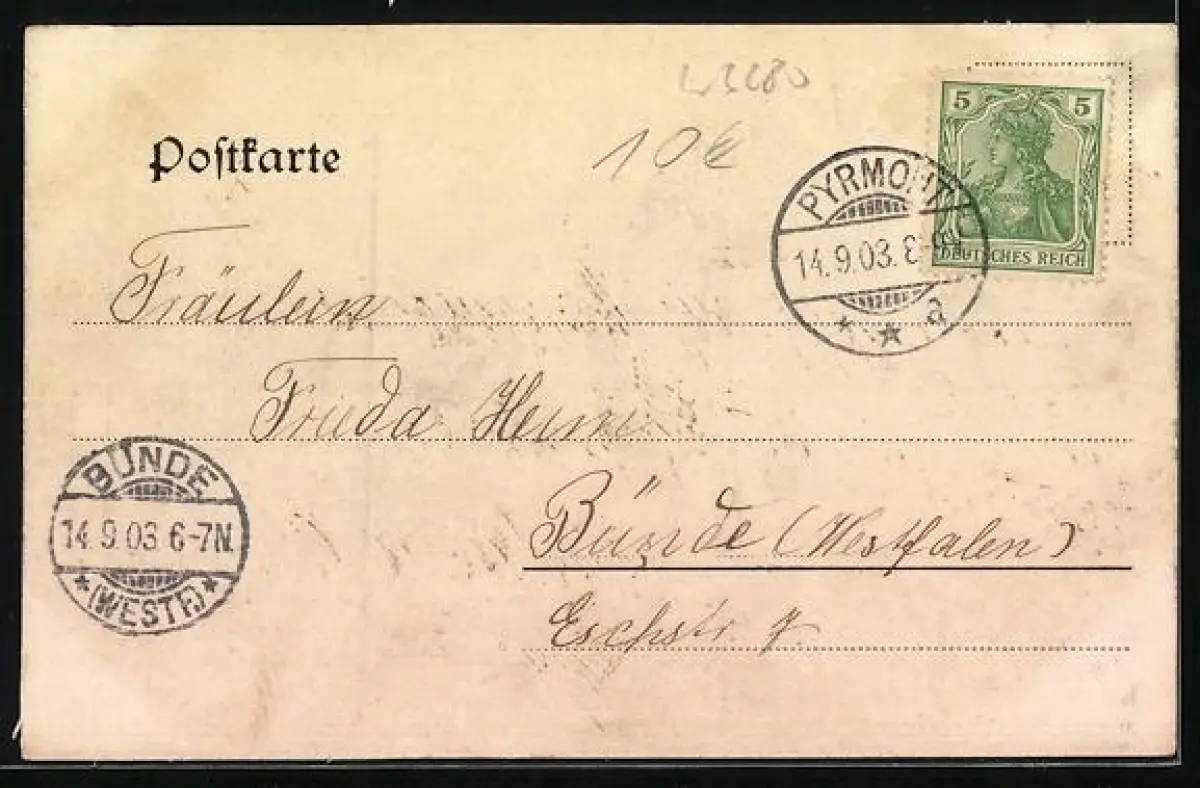 10€
Postkarte
5 5
DEUTSCHES REICH
PYRMONT
14.9.03. 8-9
* * a
Fräulein
Frieda
Bünde (Westfalen)
Eschstr.
BÜNDE
14.9.03 6-7N.
* (WESTF.) *